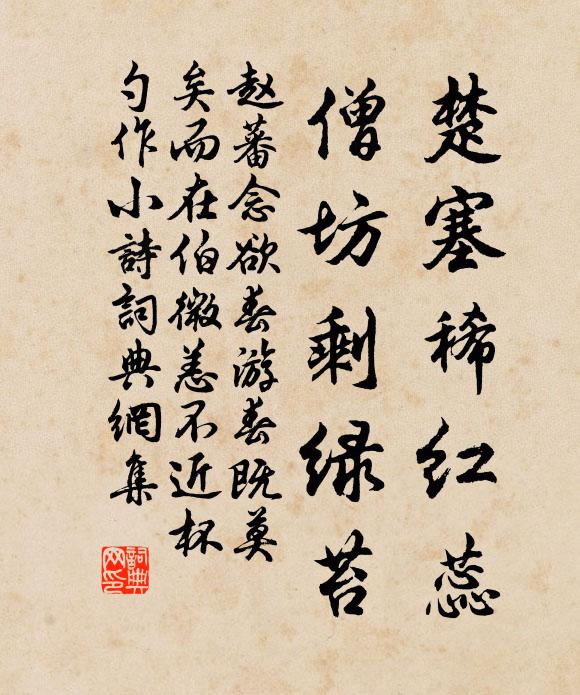 楚塞稀红蕊
僧坊剩绿苔
赵蕃念欲春游春既莫
矣而在伯微恙不近杯
勺作小詩詞典網集
詞典网印